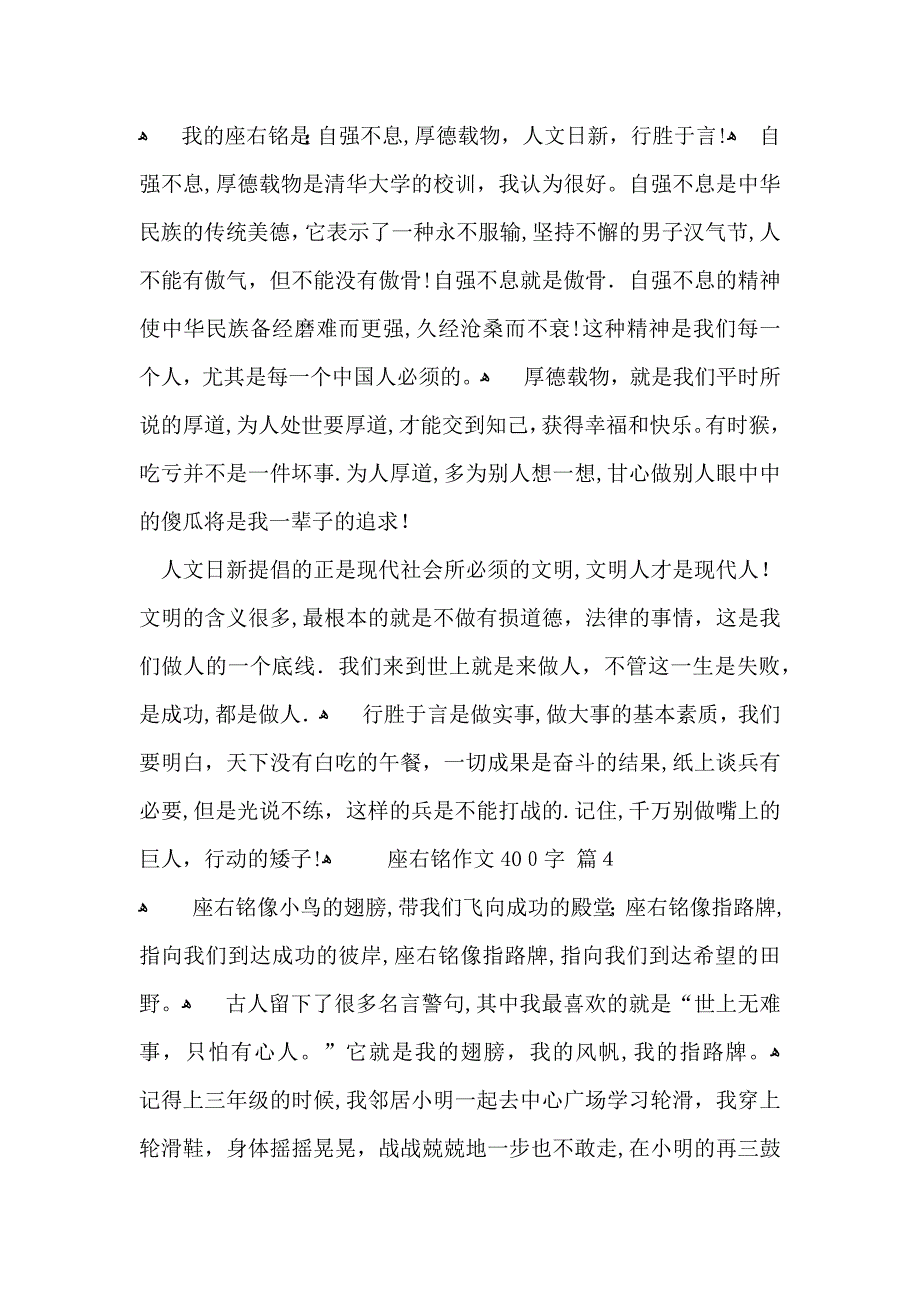 ﻫ 我的座右铭是:自强不息,厚德载物，人文日新，行胜于言!ﻫ 自
强不息,厚德载物是清华大学的校训，我认为很好。自强不息是中华
民族的传统美德，它表示了一种永不服输,坚持不懈的男子汉气节,人
不能有傲气，但不能没有傲骨!自强不息就是傲骨．自强不息的精神
使中华民族备经磨难而更强,久经沧桑而不衰!这种精神是我们每一
个人，尤其是每一个中国人必须的。ﻫ 厚德载物，就是我们平时所
说的厚道,为人处世要厚道,才能交到知己，获得幸福和快乐。有时猴，
吃亏并不是一件坏事.为人厚道,多为别人想一想,甘心做别人眼中中
的傻瓜将是我一辈子的追求！
人文日新提倡的正是现代社会所必须的文明,文明人才是现代人！
文明的含义很多,最根本的就是不做有损道德，法律的事情，这是我
们做人的一个底线．我们来到世上就是来做人，不管这一生是失败，
是成功,都是做人．ﻫ 行胜于言是做实事,做大事的基本素质，我们
要明白，天下没有白吃的午餐，一切成果是奋斗的结果,纸上谈兵有
必要,但是光说不练，这样的兵是不能打战的.记住,千万别做嘴上的
巨人，行动的矮子!ﻫ 座右铭作文400字 篇4
ﻫ 座右铭像小鸟的翅膀,带我们飞向成功的殿堂;座右铭像指路牌,
指向我们到达成功的彼岸,座右铭像指路牌,指向我们到达希望的田
野。ﻫ 古人留下了很多名言警句,其中我最喜欢的就是“世上无难
事，只怕有心人。”它就是我的翅膀，我的风帆,我的指路牌。ﻫ
记得上三年级的时候,我邻居小明一起去中心广场学习轮滑，我穿上
轮滑鞋，身体摇摇晃晃，战战兢兢地一步也不敢走,在小明的再三鼓